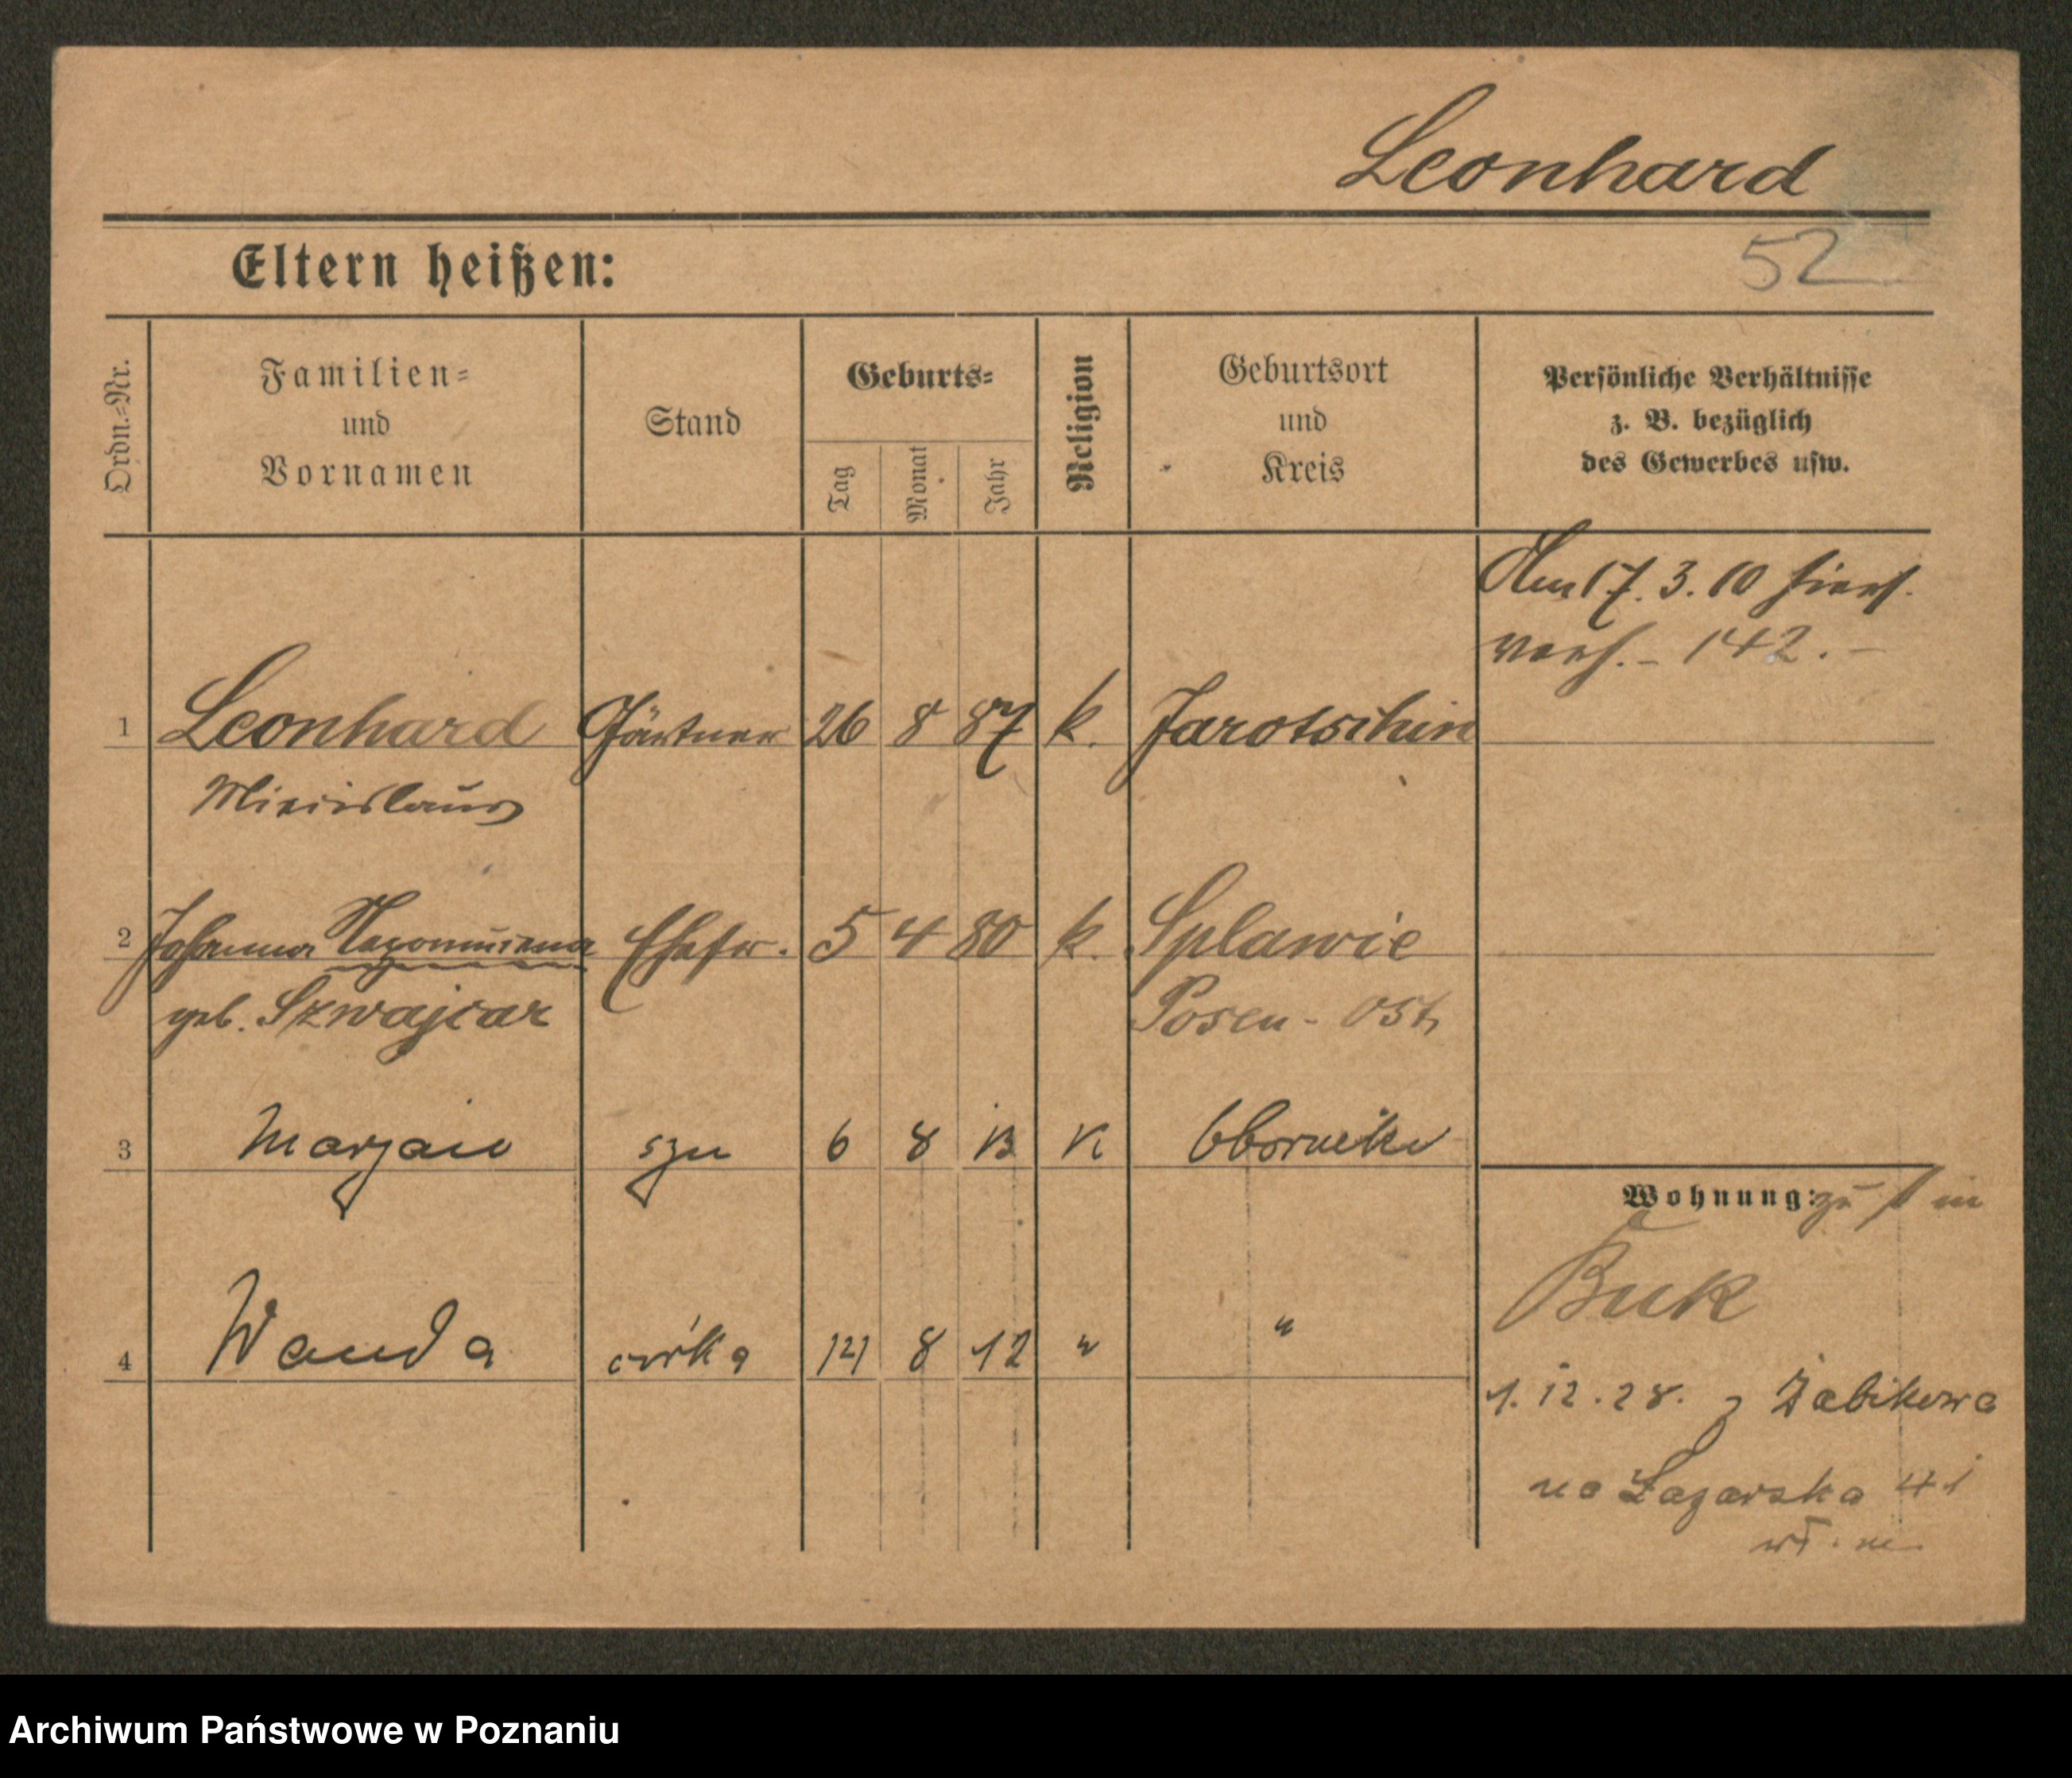 Leonhard
52
Eltern heißen:
Ordn.=Nr.
Familien=
und
Vornamen
Stand
Geburts=
Tag
Monat
Jahr
Religion
Geburtsort
und
Kreis
Persönliche Verhältnisse
z. B. bezüglich
des Gewerbes usw.
Am 17. 3. 10 hiers.
verh. - 142. -
1 Leonhard Gärtner 26 8 87 k. Jarotschin
Miecislaus
2 Johanna Nepomucena Ehefr. 5 4 80 k. Splawie
geb. Szwajcar Posen - Ost
3 Marjan syn 6 8 13 K Oborniki
Wohnung: zu 1 in
Buk
4 Wanda córka 121 8 12 " "
1. 12. 28. z Żabikowa
na Łazarska 41
wł. m.
Archiwum Państwowe w Poznaniu